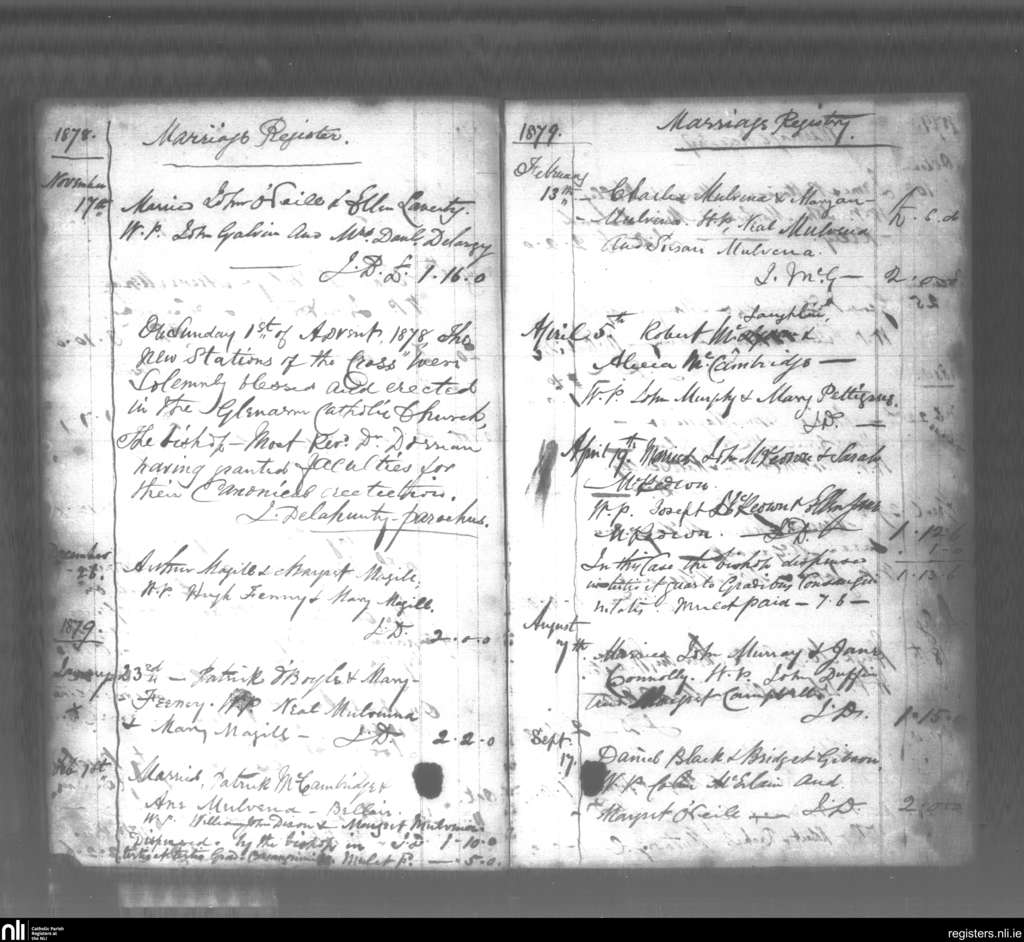 1878.
Marriage Register.
November
17th Married John O'Neill & Ellen Laverty.
W.P. John Galvin and Mrs. Danl. Delargy
J.D. £ 1.16.0
On Sunday 1st of Advent, 1878, The
New Stations of the Cross were
Solemnly blessed and erected
in the Glenarm Catholic Church,
The bishop - Most Revd. Dr. Dorrian
having granted faculties for
their Canonical erection.
J. Delahunty - parochus.
December
26. Arthur Magill & Margret Magill.
W.P. Hugh Feeny & Mary Magill.
J.D. 2.0.0
1879.
January 23rd — Patrick O'Boyle & Mary
Feeney. W.P. Neal Mulvenna
& Mary Magill — J.D. 2.2.0
Feb. Married, Patrick McCambridge &
Ann Mulvena —
W.P. William John & Margret Mulvenna.
Dispensed by the bishop in J.D. 1-10.0
— .5.0
1879.
Marriage Registry.
February
13th — Charles Mulvena & Maryan
Mulvena. W.P. Neal Mulvena
and Susan Mulvena.
J. McG — 2.
April 5th Robert McLaughlin &
Alicia McCambridge —
W.P. John Murphy & Mary Pettigrew.
J.D. —
April 19th Married John McKeown & Sarah
McKeown.
W.P. Joseph McKeown & Ellen Jane
McKeown. J.D. 1-12.6
In this Case the bishop dispenses
quarto Gradibus Consangui
nitatis Mulct paid — 7.6 — 1.13.6
August
7th Married John Murray & Jane
Connolly. W.P. John Duffin
and Margret Campbell.
J.D. 1-15.0
Sept.
17. Daniel Black & Bridget Gibson
W.P. McElain and
Margret O'Neill J.D. 2.
nli
Catholic Parish
Registers at
the NLI
registers.nli.ie